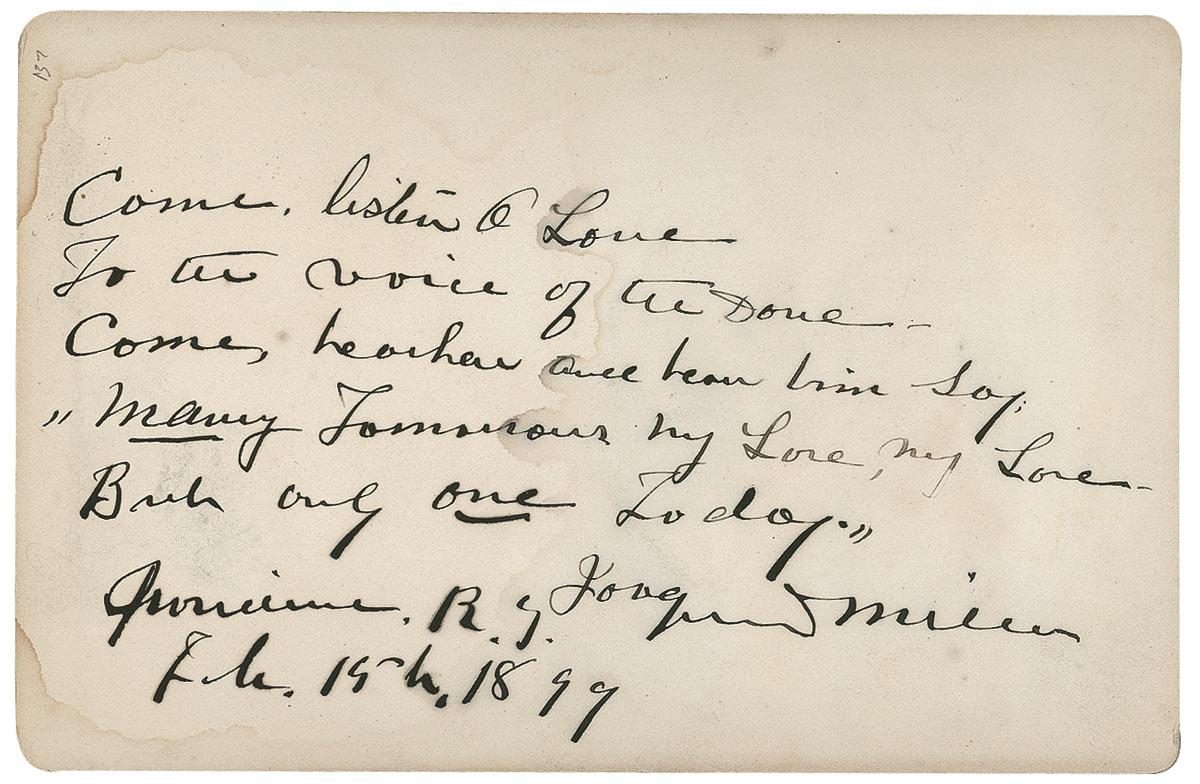 137
Come, listen O Love
To the voice of the Dove –
Come, hearken and hear him say,
„Many Tomorrows my Love, my Love –
But only one Today.”
Joaquin Miller
Providence, R. I.
Feb. 15th, 1899